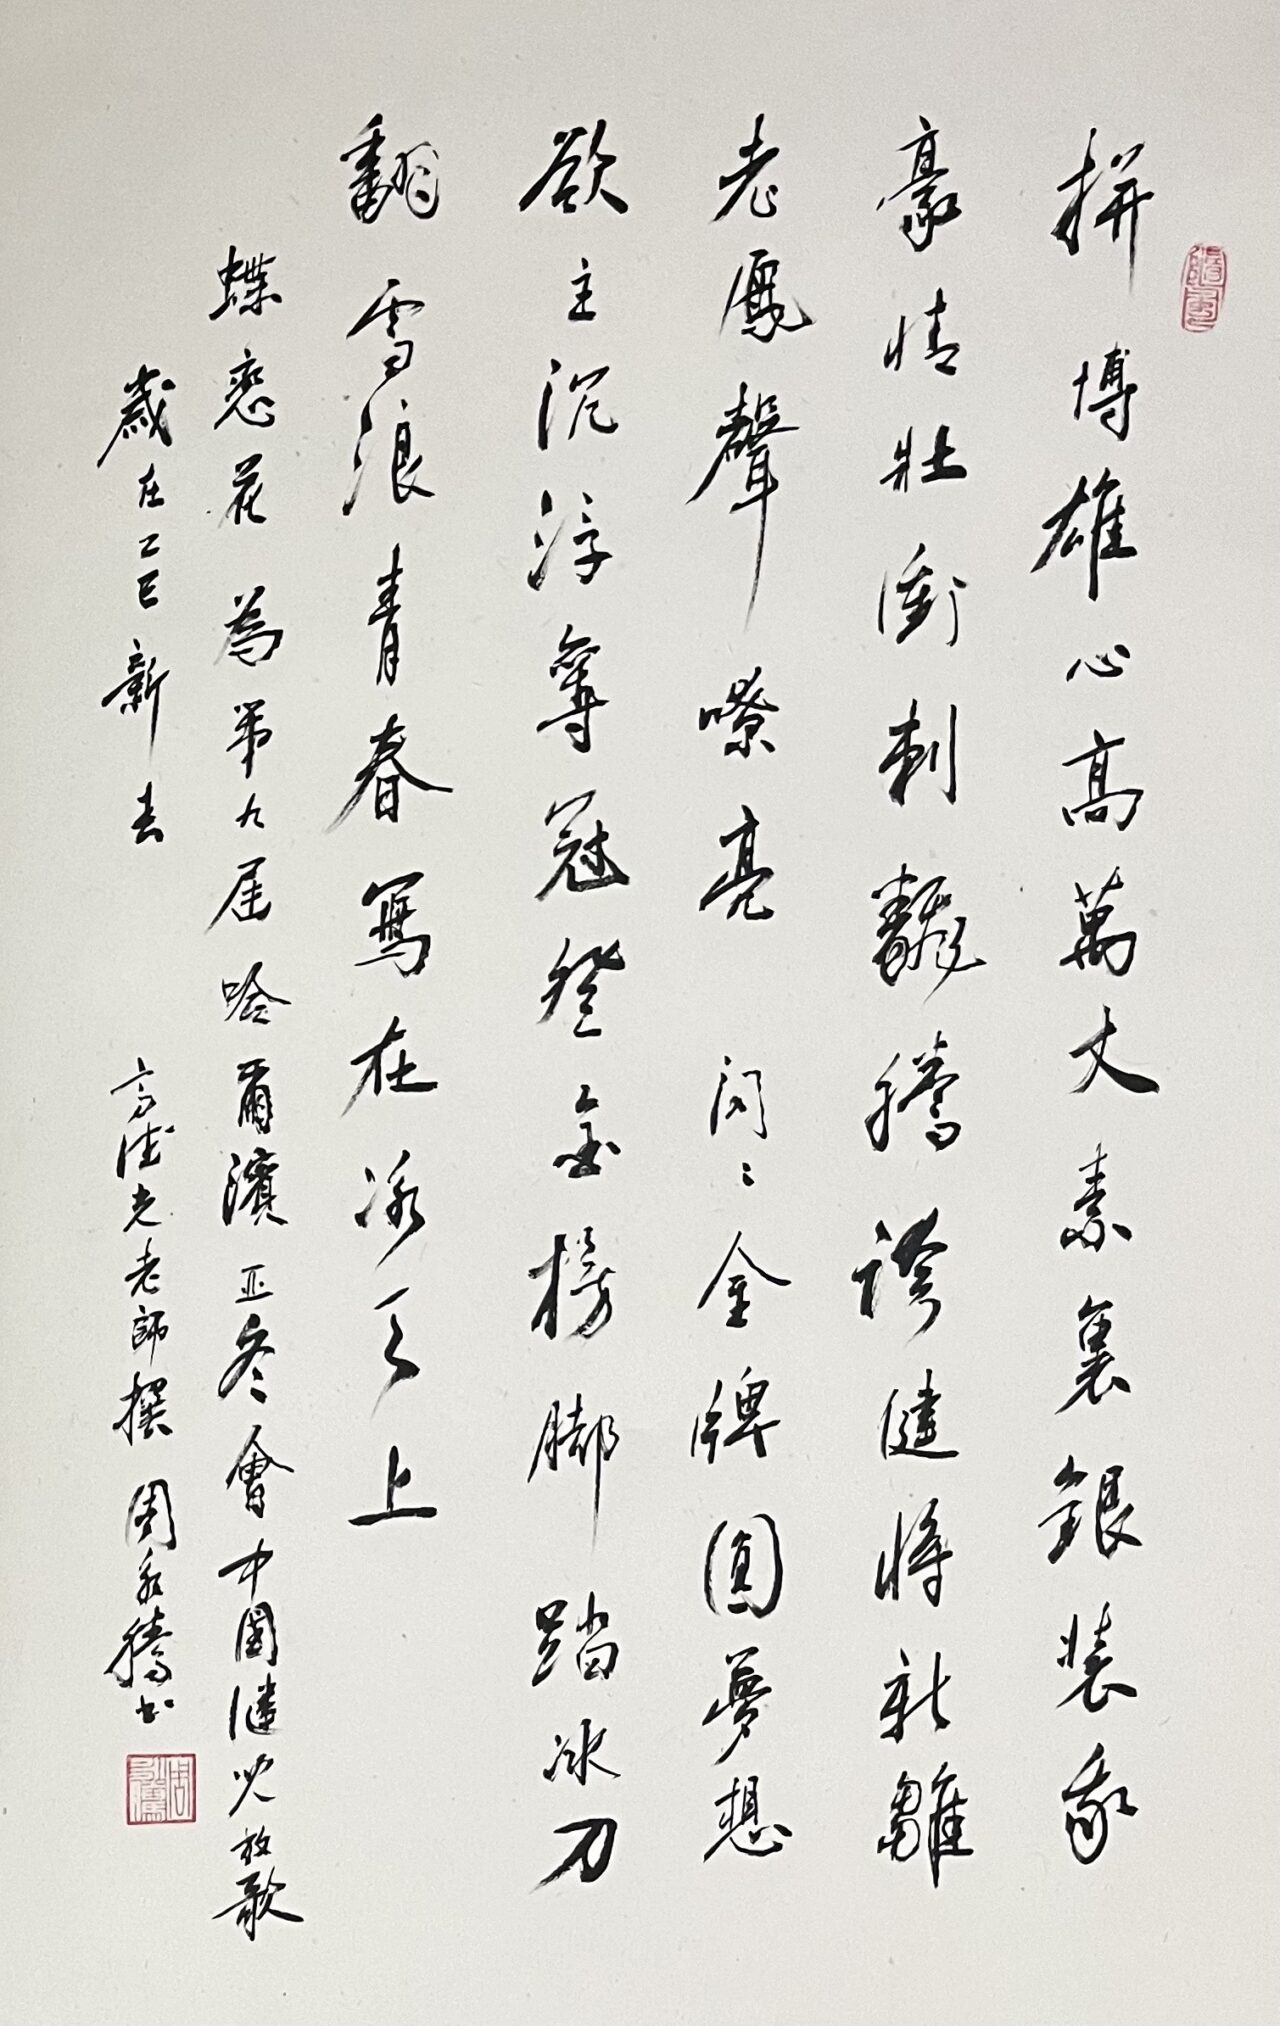 拼博雄心高萬丈素裹銀裝我
豪情壯衝刺騰誇健將新雛
老鳳聲嘹亮 閃〻金牌圓夢想
欲主沉浮奪冠登金榜脚踏冰刀
翻雪浪青春寫在冰天上
蝶戀花 為第九屆哈爾濱亞冬會中國健兒放歌
歲在乙巳新春 高德光老師撰 周永騰書